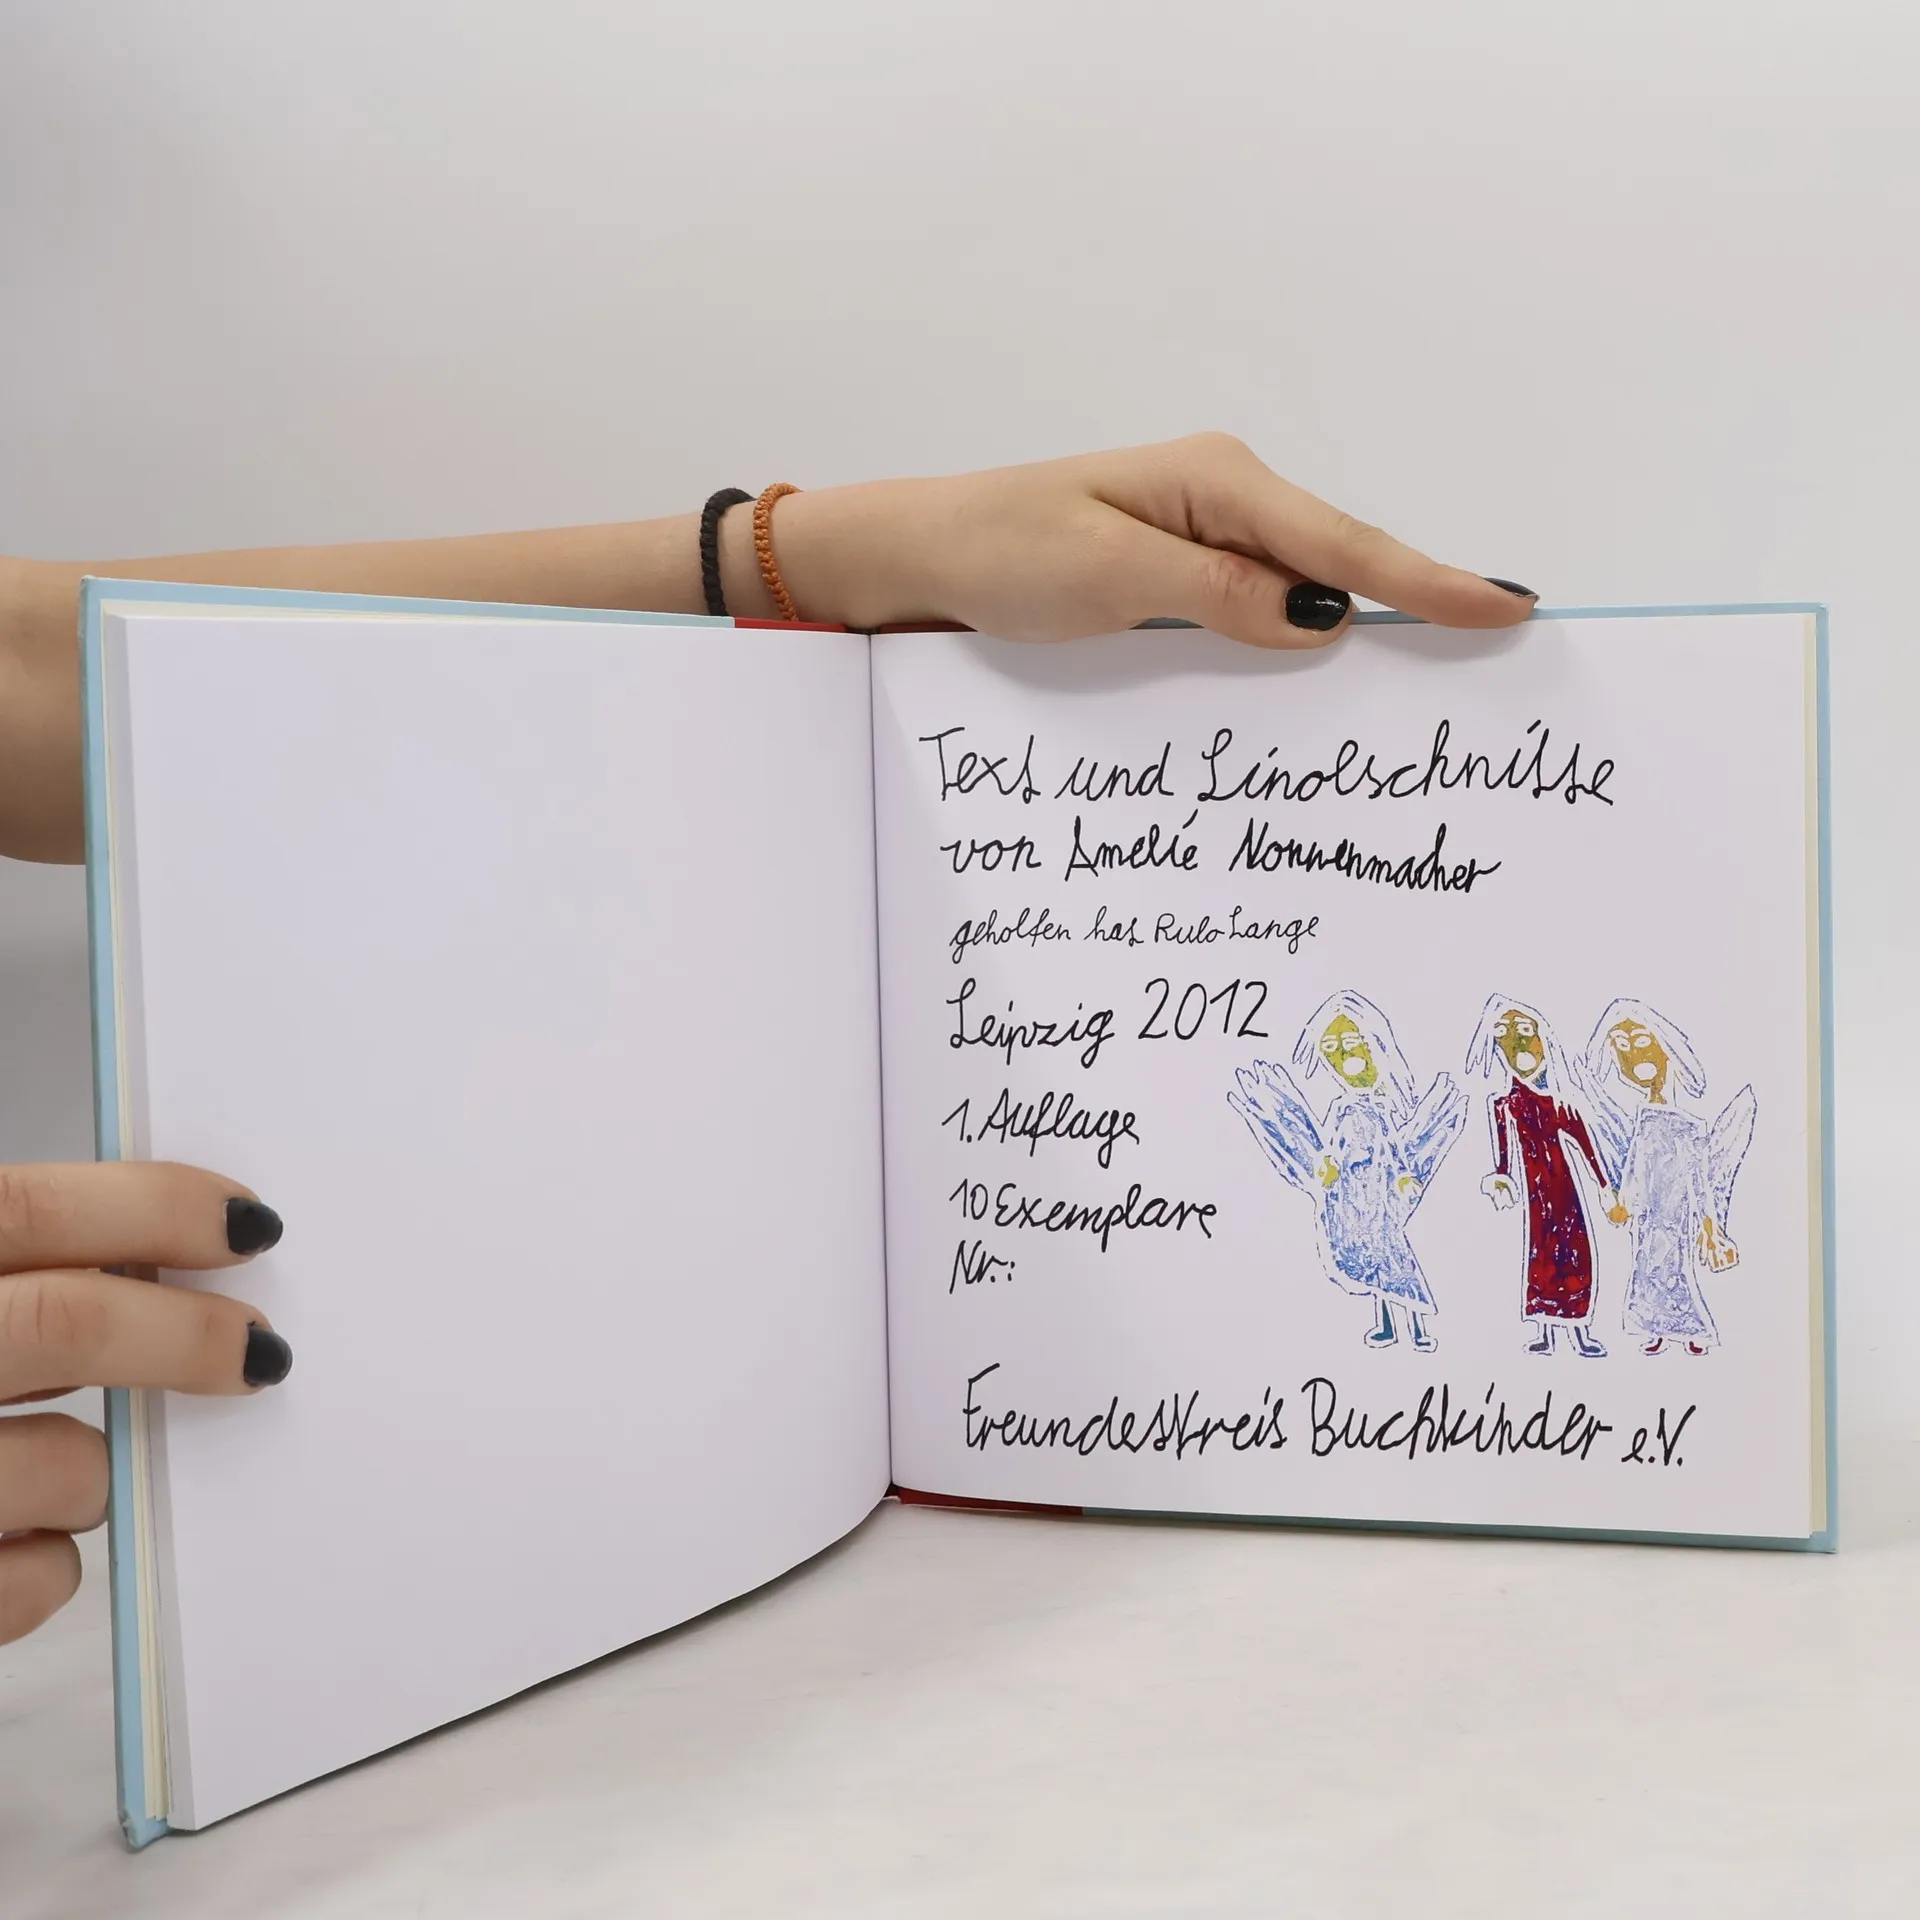 Text und Linolschnitte
von Amelie Nonnenmacher
geholfen hat Rulo Lange
Leipzig 2012
1. Auflage
10 Exemplare
Nr.:
Freundeskreis Buchkinder e.V.